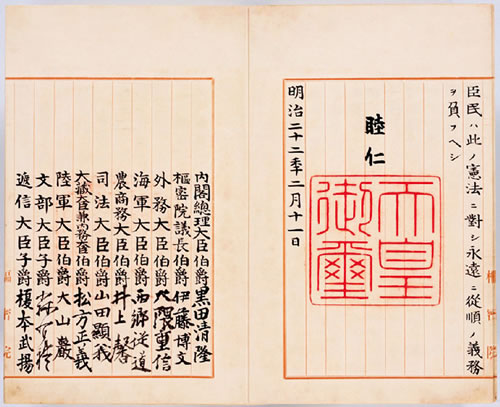 樞密院
臣民ハ此ノ憲法ニ對シ永遠ニ從順ノ義務
ヲ負フヘシ
睦仁
天皇御璽
明治二十二年二月十一日
內閣總理大臣伯爵黒田清隆
樞密院議長伯爵伊藤博文
外務大臣伯爵大隈重信
海軍大臣伯爵西郷從道
農商務大臣伯爵井上馨
司法大臣伯爵山田顯義
大藏大臣兼內務大臣伯爵松方正義
陸軍大臣伯爵大山巖
文部大臣子爵森有禮
遞信大臣子爵榎本武揚
樞密院